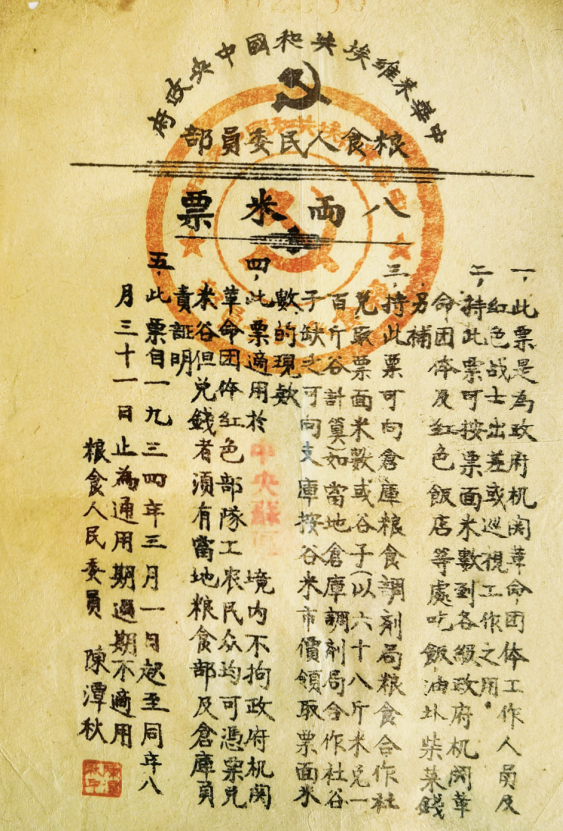 中華苏維埃共和國中央政府
粮食人民委員部
八兩米票
一,此票是為政府机関革命团体工作人員及
紅色战士出差或巡視工作之用。
二,持此票可按票面米數到各級政府机関革
命团体及紅色飯店等處吃飯,油圤柴菜錢
另補
三,持此票可向倉庫粮食調剂局粮食合作社
兑取票面米數或谷子(以六十八斤米兑一
百斤谷計算)如當地倉庫調剂局合作社谷
子缺乏可向支庫按谷米市價領取票面米
數的現款
四,此票適用於 中央蘇區 境内不拘政府机関
革命团体紅色部隊工农民众均可憑票兑
米谷但兑錢者須有當地粮食部及倉庫負
責証明
五,此票自一九三四年三月一日起至同年八
月三十一日止為通用期過期不適用
粮食人民委員 陳潭秋